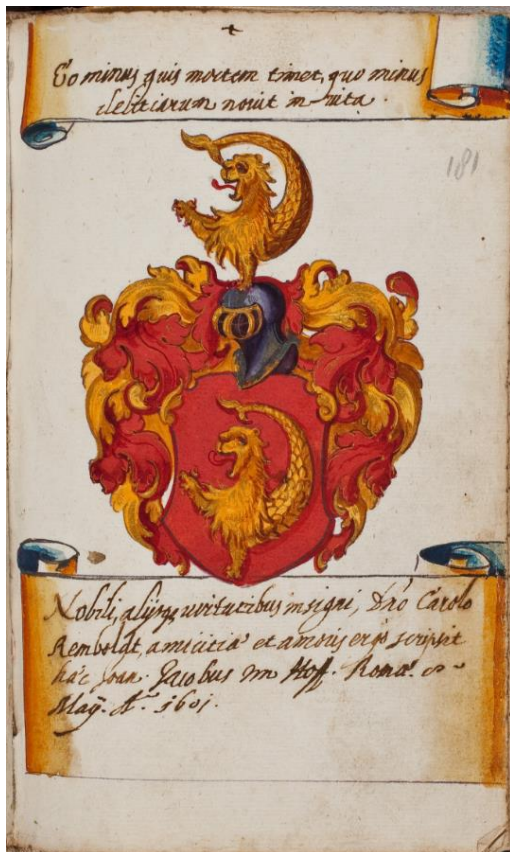 Eo minus quis mortem timet, quo minus
delitiarum novit in vita.
181
Nobili, alijsque virtutibus insigni, Dño Carolo
Remboldt, amicitiæ et amoris ergo scripsit
hæc Joan. Jacobus im Hoff. Romæ.
Maÿ. Aº. 1601.